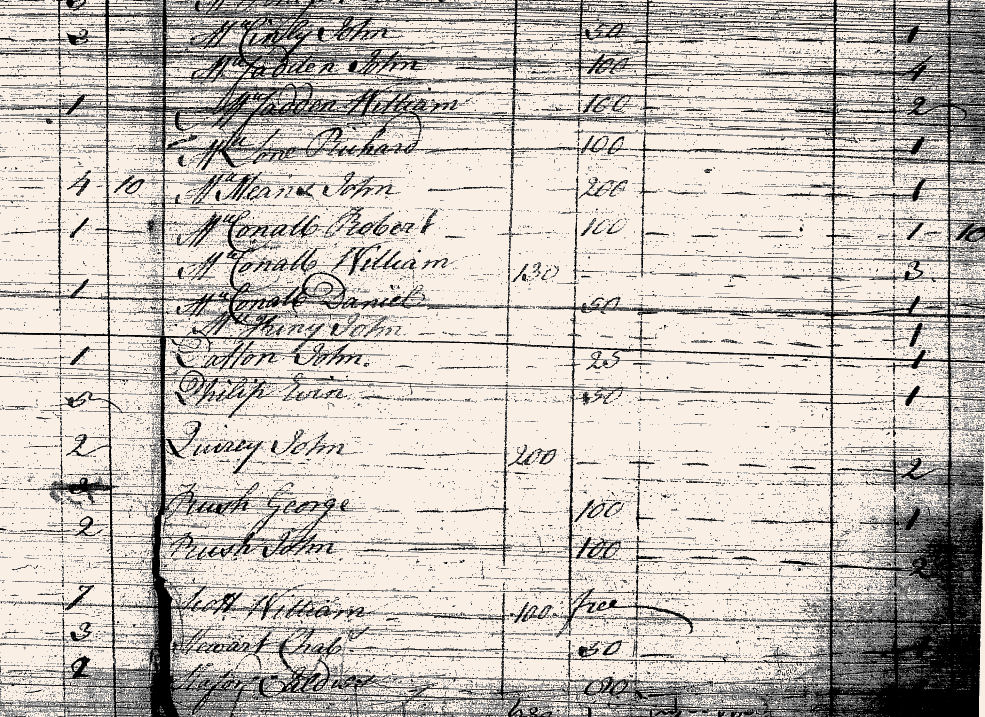 3 McCinly John 50 1
McFadden John 100 4
1 McFadden William 100 2
McClone Richard 100 1
4 10 McMeans John 200 1
1 McConall Robert 100 1 10
McConall William 130 3
1 McConall Daniel 50 1
John 1
1 Patton John. 25 1
5 Philip Ewin 50 1
2 Quirey John 200 2
Rush George 100 1
2 Rush John 100 2
7 Scott William 100 free
3 Stewart Chas. 50
2 100